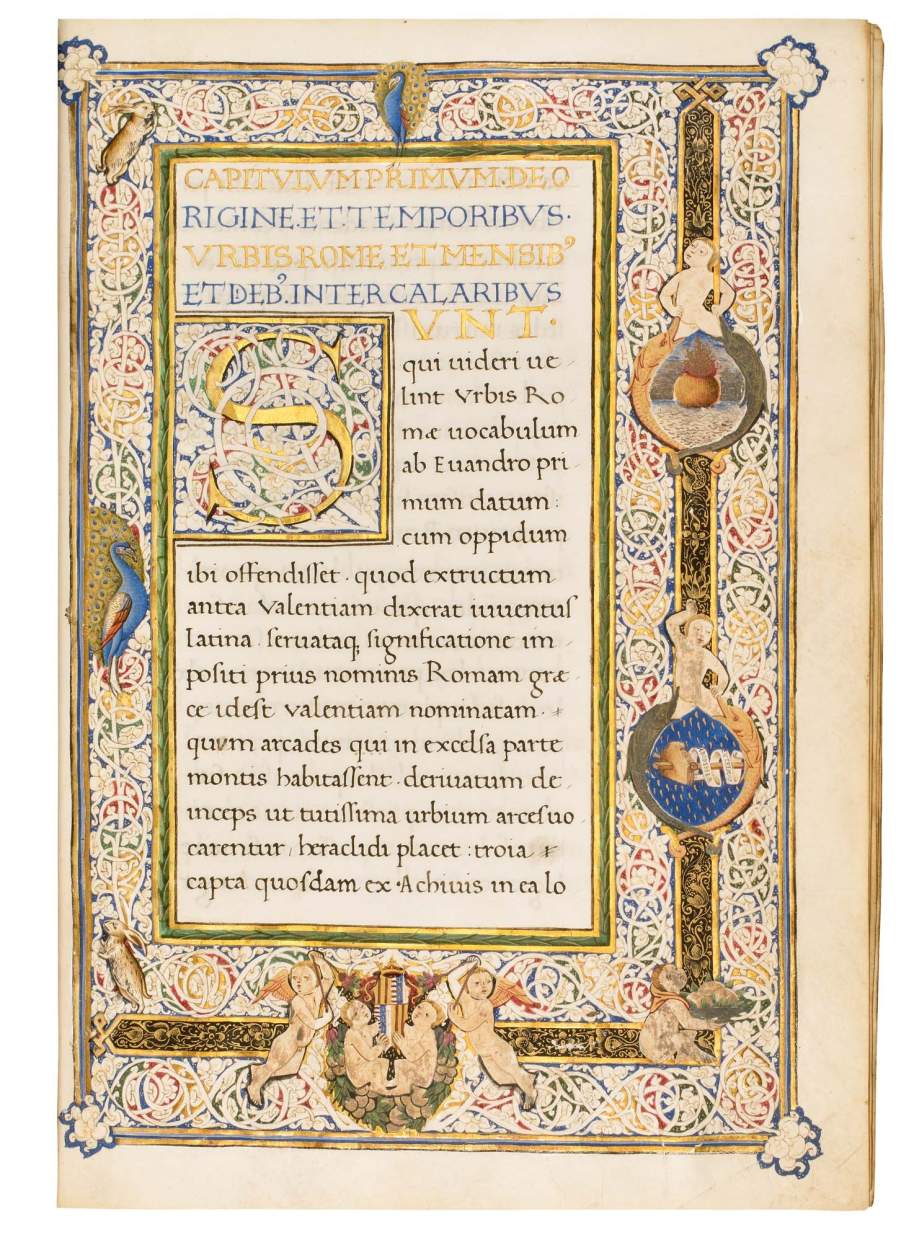 CAPITVLVM PRIMVM·DE O
RIGINE·ET·TEMPORIBVS·
VRBIS ROME ET MENSIBꝰ
ET DEBꝰ·INTERCALARIBVS
SVNT·
qui uideri ue
lint Vrbis Ro
mæ uocabulum
ab Euandro pri
mum datum:
cum oppidum
ibi offendiſſet·quod extructum
antea Valentiam dixerat iuuentuſ
latina·ſeruataq; ſignificatione im
poſiti prius nominis Romam græ
ce idest valentiam nominatam·
quum arcades qui in excelſa parte
montis habitaſſent·deriuatum de
inceps ut tutiſſima urbium arceſ uo
carentur, heraclidi placet:troia
capta quoſdam ex·Achiuis in ea lo